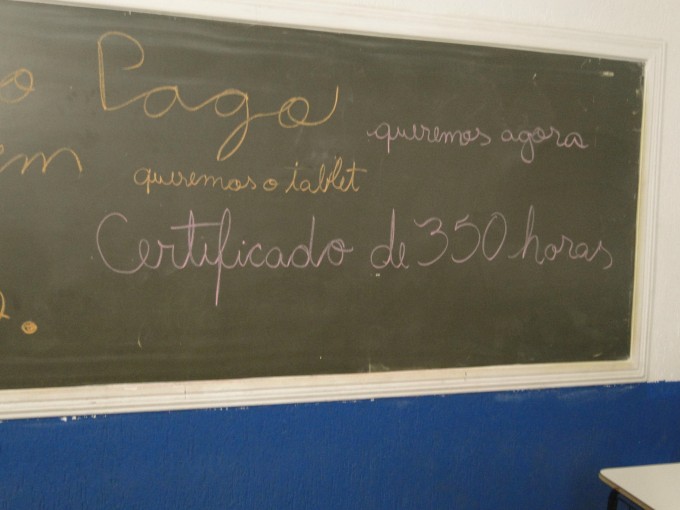 Pago
queremos agora
queremos o tablet
Certificado de 350 horas